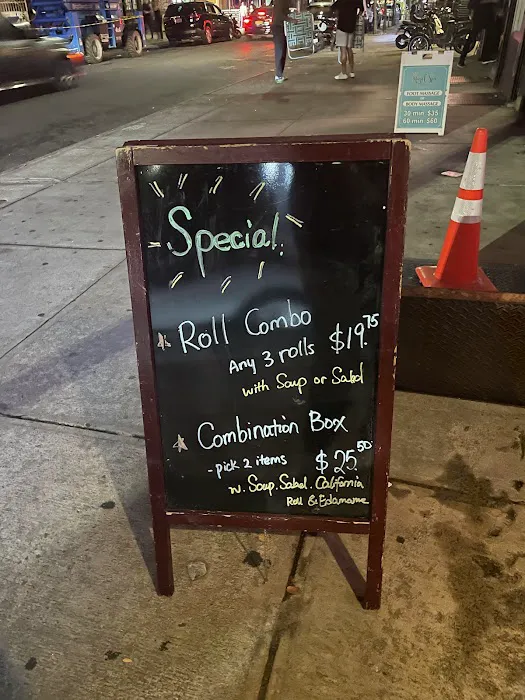 FOOT MASSAGE
BODY MASSAGE
30 min $35
60 min $60
Special!
Roll Combo $19.75
Any 3 rolls
with Soup or Salad
Combination Box
-pick 2 items $25.50
w. Soup. Salad. California
Roll & Edamame